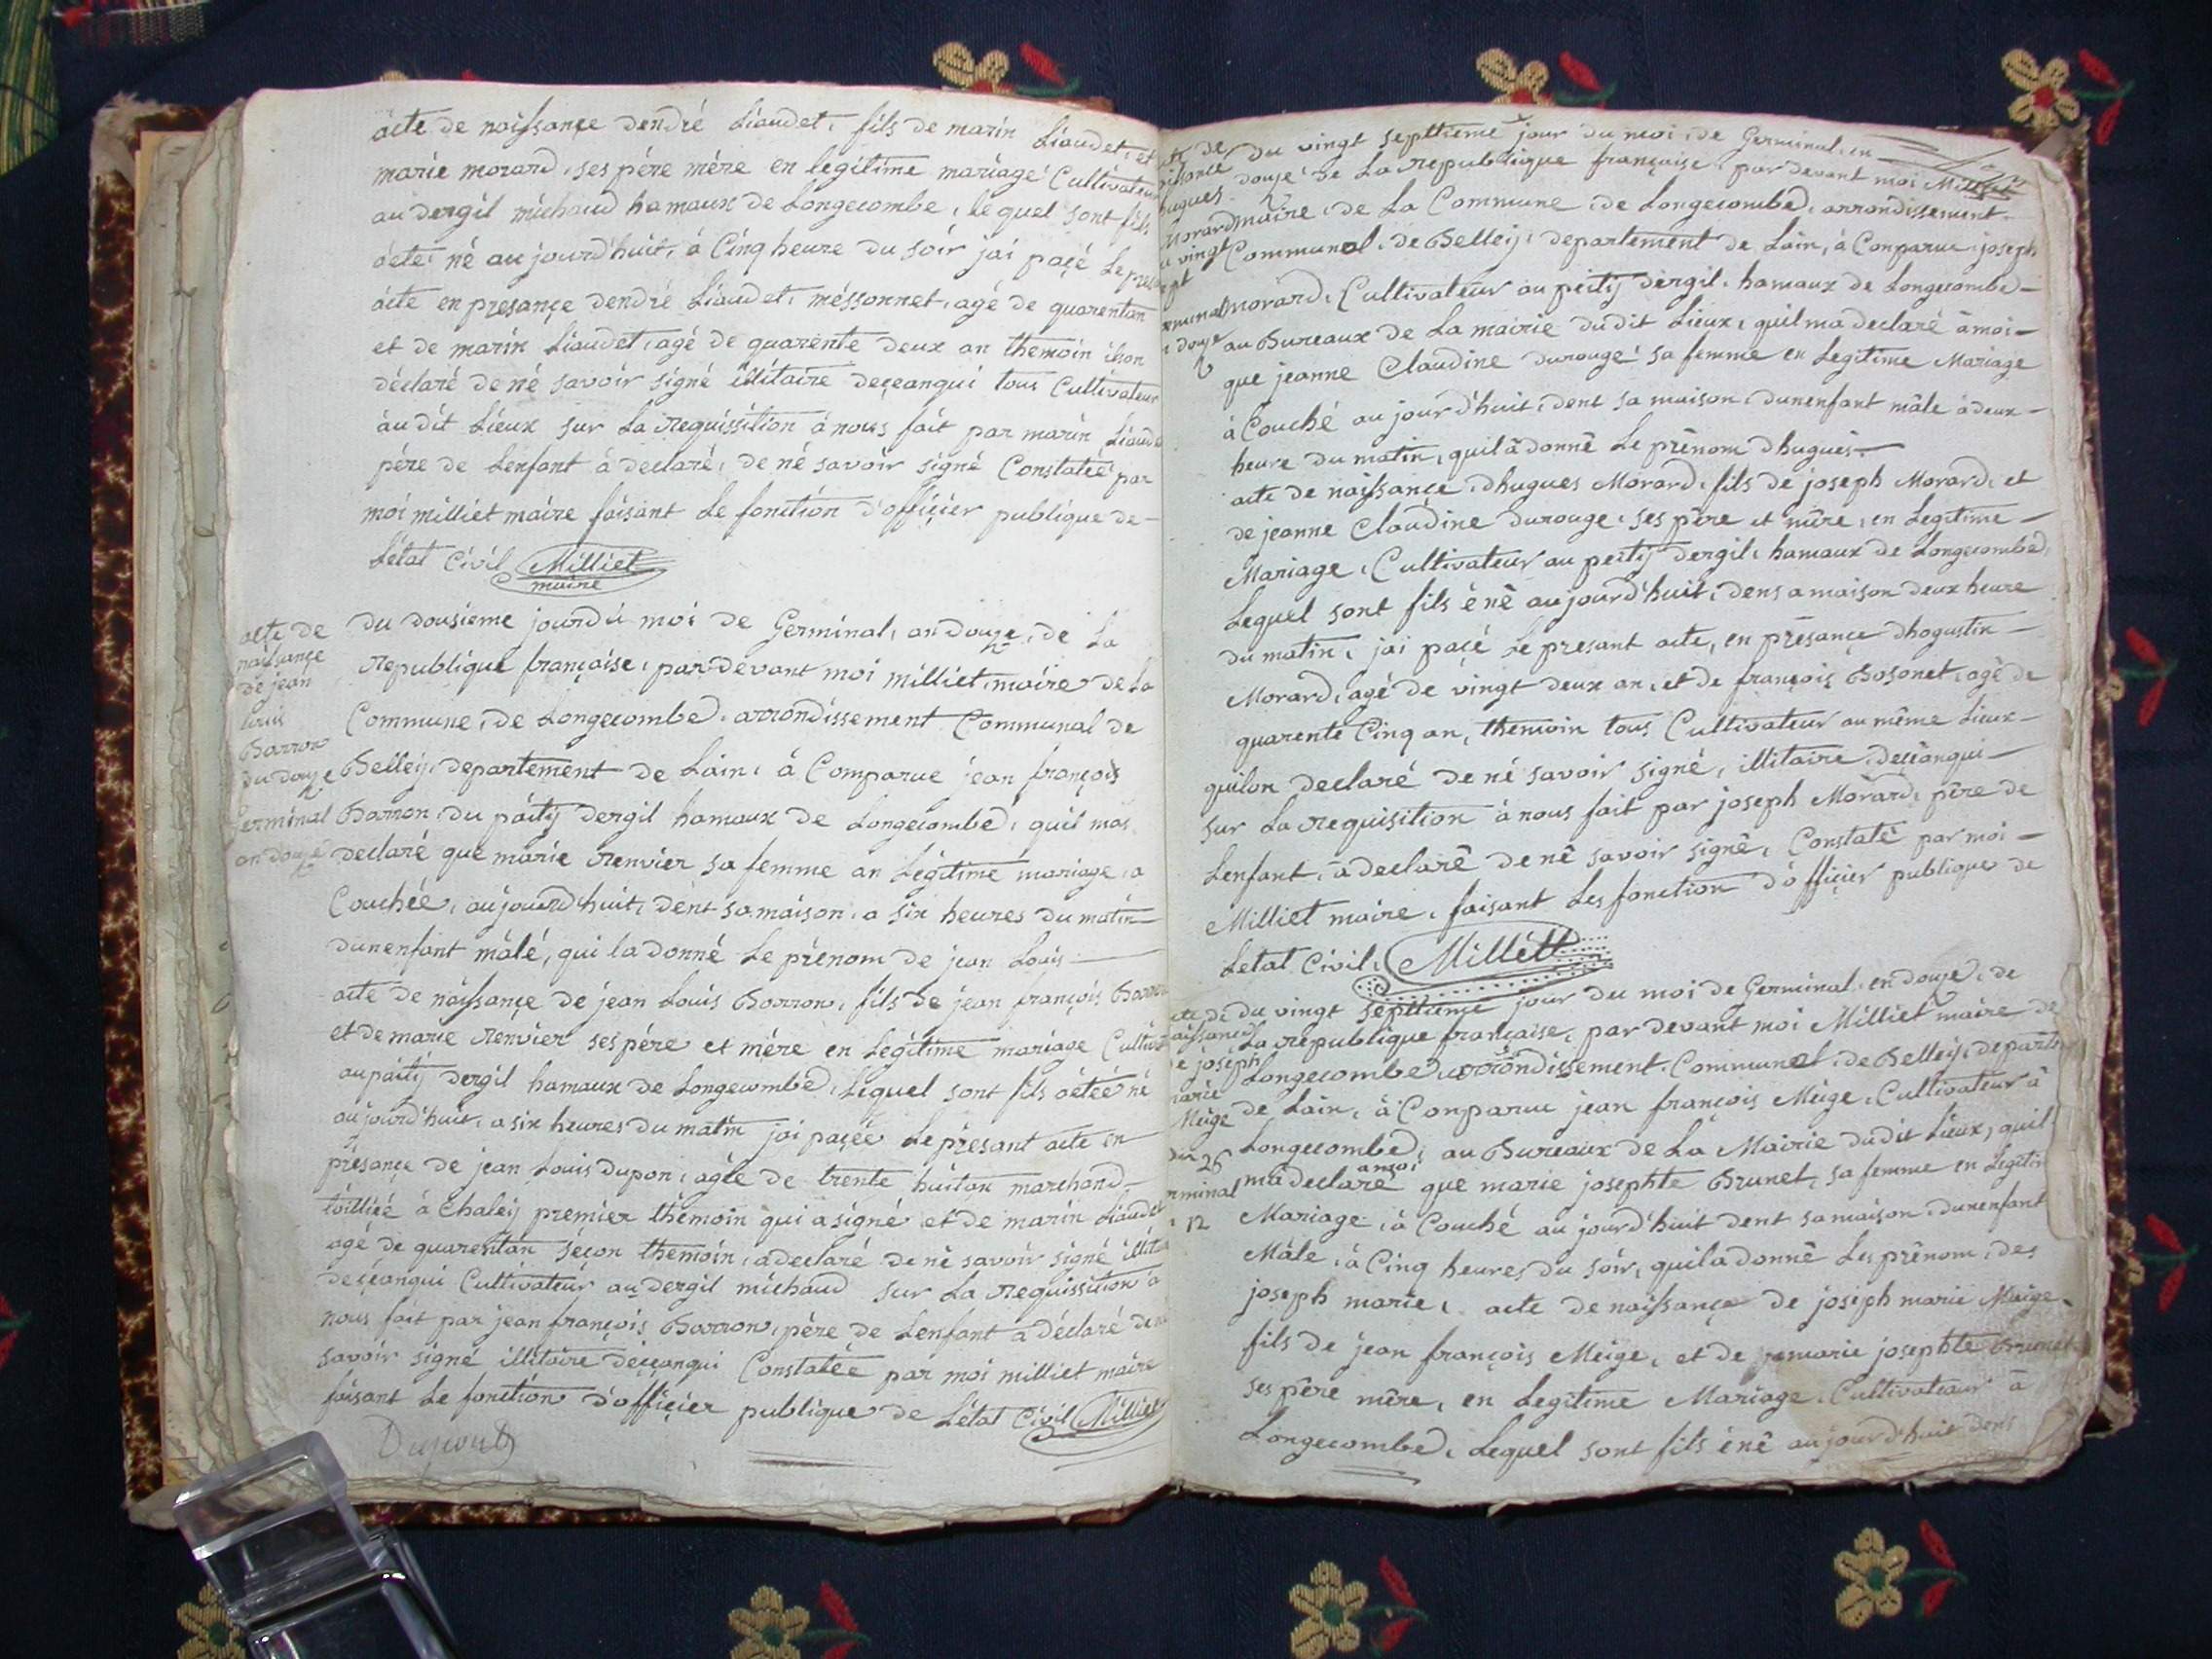 acte de naissançe dendré Liaudet, fils de marin Liaudet, et
marie morard, ses pére mére en legitime mariage Cultivateur
au dergil michaud hamaux de Longecombe, le quel sont fils
áeté né aujourd'huit, á Cinq heure du soir jai paçé Le
acte en presançe dendré Liaudet, méssonnet, agé de quarentan
et de marin Liaudet, agé de quarente deux an themoin ilson
déclaré de né savoir signé illitaire deçeanqui tous Cultivateur
áu dit Lieux sur La requissition á nous fait par marin
pére de Lenfant á declaré, de né savoir signé Constatéé par
moi milliet maire faisant Le fonction d'offiçier publique de
Létat Civil Milliet
maire
acte de
naissançe
de jean
louis
Barron
du douze
Germinal
an douze
du dousieme jour du moi de Germinal, an douze, de La
republique française, par devant moi milliet, maire de La
Commune, de Longecombe, arrondissement Communal de
Belleÿ, departement de Lain, á Comparue jean françois
Barron, du páitÿ dergil hamaux de Longecombe, quil mas
declaré que marie renvier sa femme an Légitime mariage, a
Couchée, aujourd'huit, dént sa maison, a six heures du matin
dunenfant málé, qui la donné Le prénom de jean Louis
acte de naissançe de jean Louis Barron, fils de jean françois
et de marie renvier ses pére et mére en Legitime mariage
au páitÿ dergil hamaux de Longecombe, Lequel sont fils áetéé né
aujourd'huit, a six heures du matin jai paçéé Le présant acte en
présançe de jean Louis dupon, agée de trente huitan marchand
toilliée á Chaleÿ premier thémoin qui a signé et de marin Liaudet
agé de quarentan séçon themoin, a declaré de né savoir signé
deçéanqui Cultivateur au dergil michaud sur La requissition á
nous fait par jean françois Barron, pére de Lenfant a déclaré
savoir signé illitaire deçeanqui Constatée par moi milliet maire
faisant Le fonction d'offiçier publique de Létat Civil Milliet
Dupont
du vingt septtieme jour du moi, de Germinal, en
douze de La republique française, par devant moi Milliet
maire, de La Commune, de Longecombe, arrondissement
Communal, de Belleÿ, departement de Lain, à Comparue, joseph
morard, Cultivateur au peitÿ dergil, hamaux de Longecombe
au Bureaux de La mairie dudit Lieux, quil ma declaré à moi
que jeanne Claudine durouge sa femme en Legitime Mariage
à Couché au jour d'huit, dent sa maison, dunenfant mâle à deux
heure du matin, quil à donnê Le prênom dhugues
acte de naissançe, dhugues Morard, fils de joseph Morard, et
de jeanne Claudine durouge, ses pêre et mêre, en Legitime
Mariage, Cultivateur au peitÿ dergil, hamaux de Longecombe,
Lequel sont fils énê aujourd'huit, dens a maison deux heure
du matin, jai paçé Le presant acte, en prêsançe dhogustin
Morard, agé de vingt deux an, et de françois Bosonet, agé de
quarente Cinq an, themoin tous Cultivateur au même Lieux
quilon declaré de né savoir signé, illitaire deçeanqui
sur La requisition à nous fait par joseph Morard, pêre de
Lenfant, à declarê de nê savoir signê, Constatê par moi
Milliet maire, faisant Les fonction d'offiçier publique de
Letat Civil, Milliet
du vingt septtieme jour du moi de Germinal en douze, de
La republique française, par devant moi Milliet maire de
Longecombe arrondissement Communal, de Belleÿ,
de Lain, à Comparue jean françois Meige, Cultivateur à
Longecombe, au Bureaux de La Mairie dudit Lieux, quil
ma declaré que marie josephte Brunet, sa femme en
Mariage, à Couché au jour d'huit dent sa maison, dunenfant
Mâle, à Cinq heures du soir, quila donnê Les prênom, des
joseph marie, acte de naissançe de joseph marie Meige,
fils de jean françois Meige, et de marie josephte Brunet
ses pêre mêre, en Legitime Mariage, Cultivateur à
Longecombe, Lequel sont fils énê au jour d'huit dens